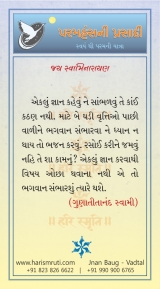 પરમહંસની પ્રસાદી
સ્વયં થી પરમની યાત્રા
જય સ્વામિનારાયણ
એકલું જ્ઞાન કહેવું ને સાંભળવું તે કાંઈ
કઠણ નથી. માટે બે ઘડી વૃત્તિઓ પાછી
વાળીને ભગવાન સંભારવા ને ધ્યાન ન
થાય તો ભજન કરવું. રસોઈ કરીને જમવું
નહિ તે શા કામનું? એકલું જ્ઞાન કરવાથી
વિષય ઓછા થવાના નથી એ તો
ભગવાન સંભારશું ત્યારે થશે.
(ગુણાતીતાનંદ સ્વામી)
હરિ સ્મૃતિ
www.harismruti.com
Jnan Baug - Vadtal
+91 823 826 6622 | +91 990 900 6765